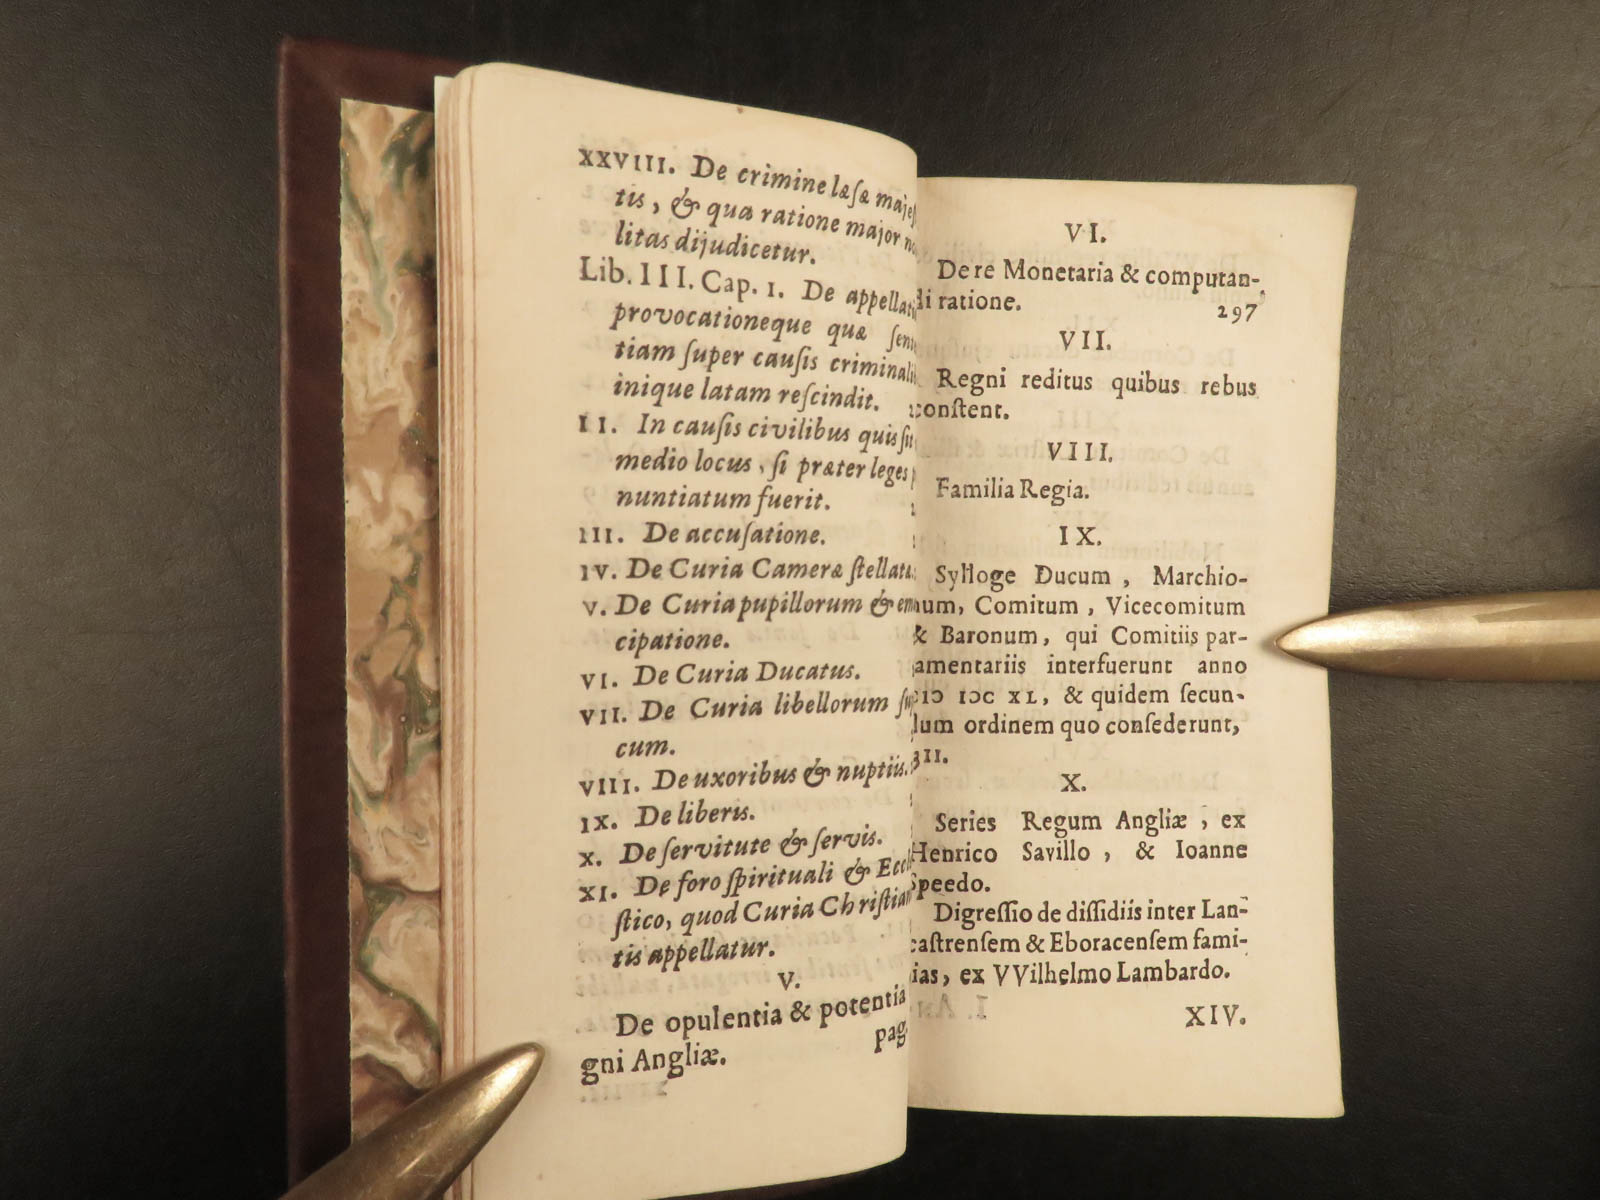 XXVIII. De crimine læſæ majeſ
tis, & qua ratione major no
litas dijudicetur.
Lib. III. Cap. 1. De appellati
provocationeque quæ ſen
tiam ſuper cauſis criminali
inique latam reſcindit.
II. In cauſis civilibus quis ſit
medio locus, ſi præter leges p
nuntiatum fuerit.
III. De accuſatione.
IV. De Curia Cameræ ſtellatæ
V. De Curia pupillorum & em
cipatione.
VI. De Curia Ducatus.
VII. De Curia libellorum ſup
cum.
VIII. De uxoribus & nuptiis.
IX. De liberis.
X. De ſervitute & ſervis.
XI. De foro ſpirituali & Eccl
ſtico, quod Curia Chriſtian
tis appellatur.
V.
De opulentia & potentia
gni Angliæ. pag
VI.
De re Monetaria & computan-
di ratione. 297
VII.
Regni reditus quibus rebus
conſtent.
VIII.
Familia Regia.
IX.
Sylloge Ducum, Marchio-
num, Comitum, Vicecomitum
& Baronum, qui Comitiis par-
lamentariis interfuerunt anno
CIƆ IƆC XL, & quidem ſecun-
dum ordinem quo conſederunt,
311.
X.
Series Regum Angliæ, ex
Henrico Savillo, & Ioanne
Speedo.
Digreſſio de diſſidiis inter Lan-
caſtrenſem & Eboracenſem fami-
lias, ex VVilhelmo Lambardo.
XIV.